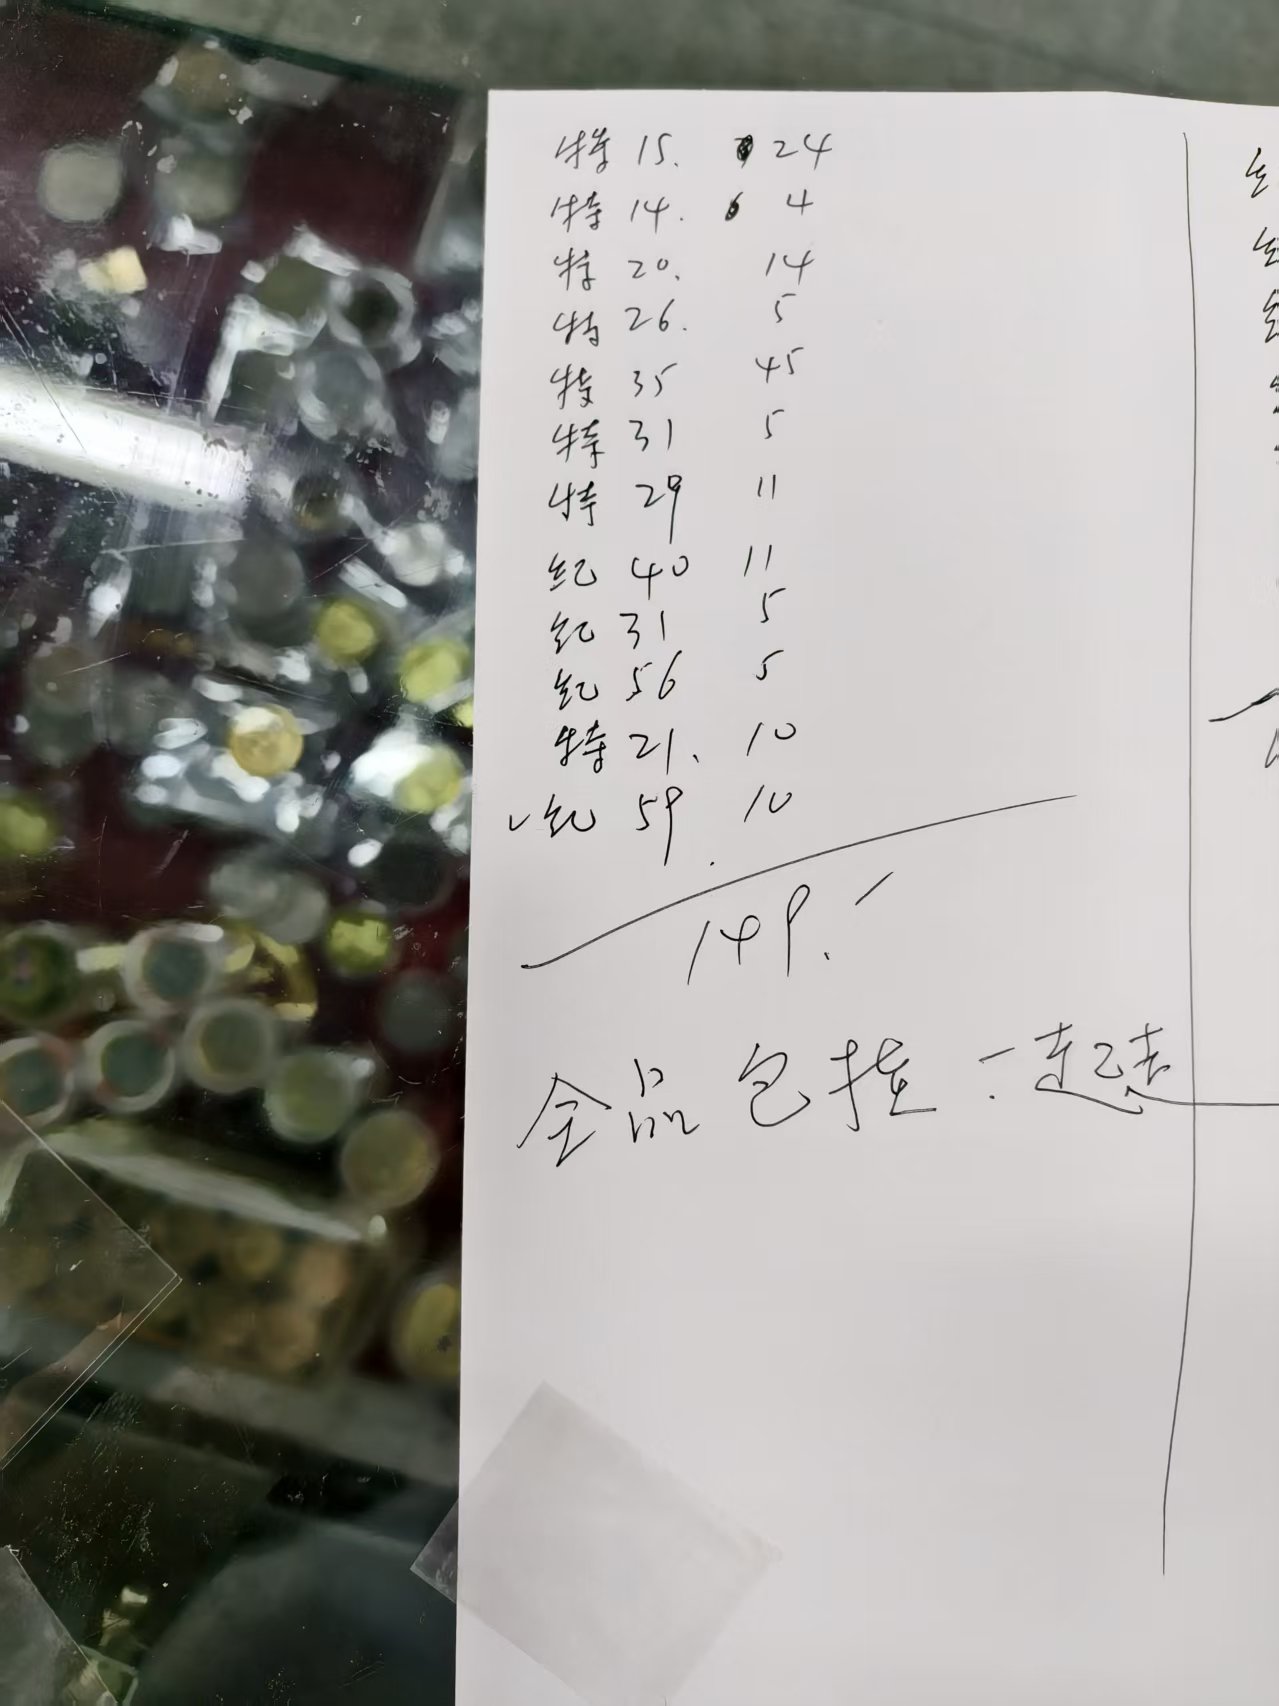 特 15. 24
特 14. 4
特 20. 14
特 26. 5
特 35 45
特 31 5
特 29 11
纪 40 11
纪 31 5
纪 56 5
特 21. 10
纪 59. 10
149.
全品包挂一起走